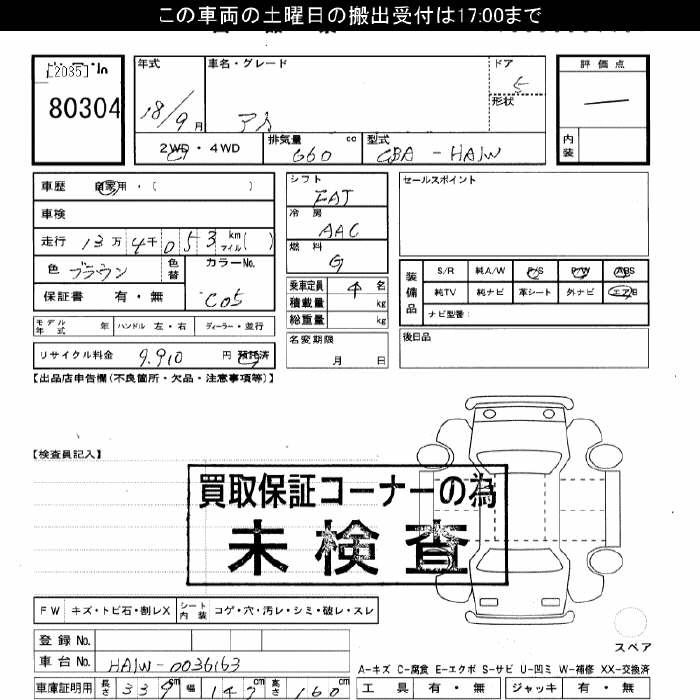 この車両の土曜日の搬出受付は17:00まで
[2035]
80304
年式
18/9月
車名・グレード
アイ
ドア
5
形状
評価点
内装
2WD・4WD
排気量 660 cc
型式 CBA - HA1W
車歴 自家用・( )
車検
走行 13万4千053 km マイル( )
色 ブラウン 色替
カラーNo. C05
保証書 有・無
モデル年式 年 ハンドル 左・右 ディーラー・並行
リサイクル料金 9.910 円 預託済
シフト FAT
冷房 AAC
燃料 G
乗車定員 4 名
積載量 kg
総重量 kg
名変期限 月 日
セールスポイント
装備品
S/R 純A/W P/S P/W ABS
純TV 純ナビ 革シート 外ナビ エアB
ナビ型番:
後日品
【出品店申告欄(不良箇所・欠品・注意事項等)】
【検査員記入】
買取保証コーナーの為
未検査
FW キズ・トビ石・割レX シート内装 コゲ・穴・汚レ・シミ・破レ・スレ
登録No.
車台No. HA1W-0036163
スペア
A-キズ C-腐食 E-エクボ S-サビ U-凹ミ W-補修 XX-交換済
車庫証明用 長さ 339cm 幅 147cm 高さ 160cm
工具 有・無 ジャッキ 有・無